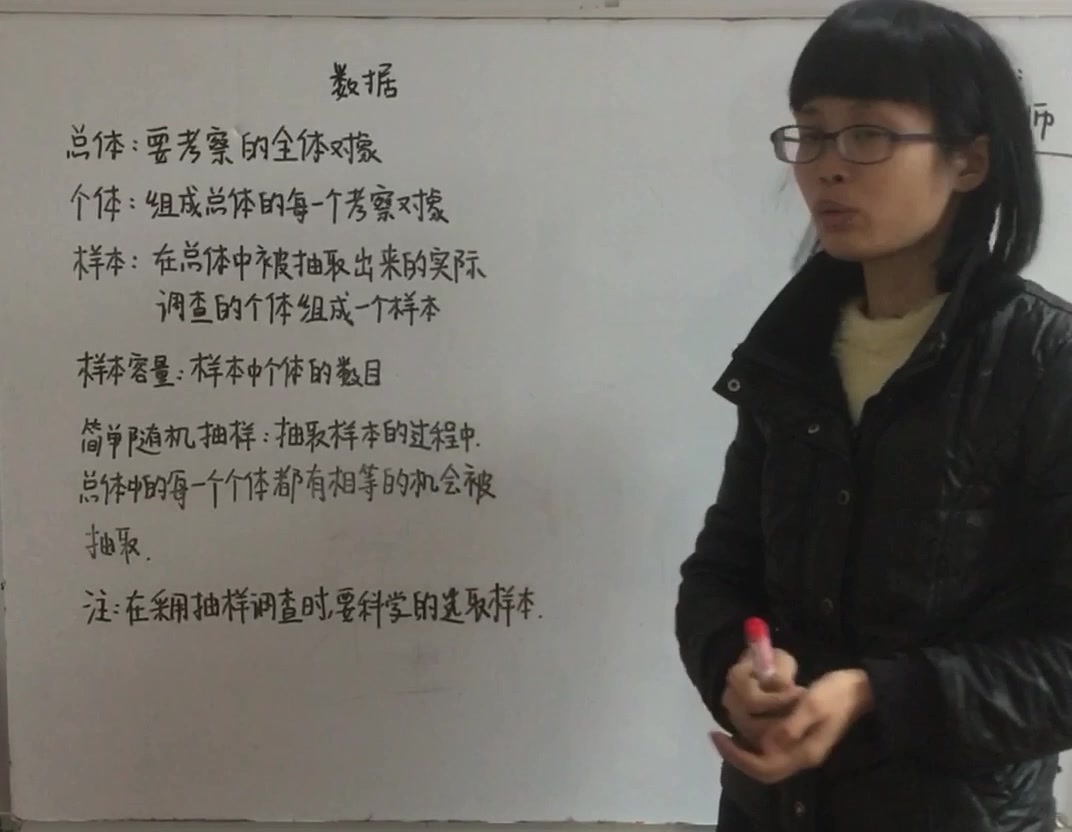 数据
总体:要考察的全体对象
个体:组成总体的每一个考察对象
样本:在总体中被抽取出来的实际
调查的个体组成一个样本
样本容量:样本中个体的数目
简单随机抽样:抽取样本的过程中.
总体中的每一个个体都有相等的机会被
抽取.
注:在采用抽样调查时,要科学的选取样本.
师